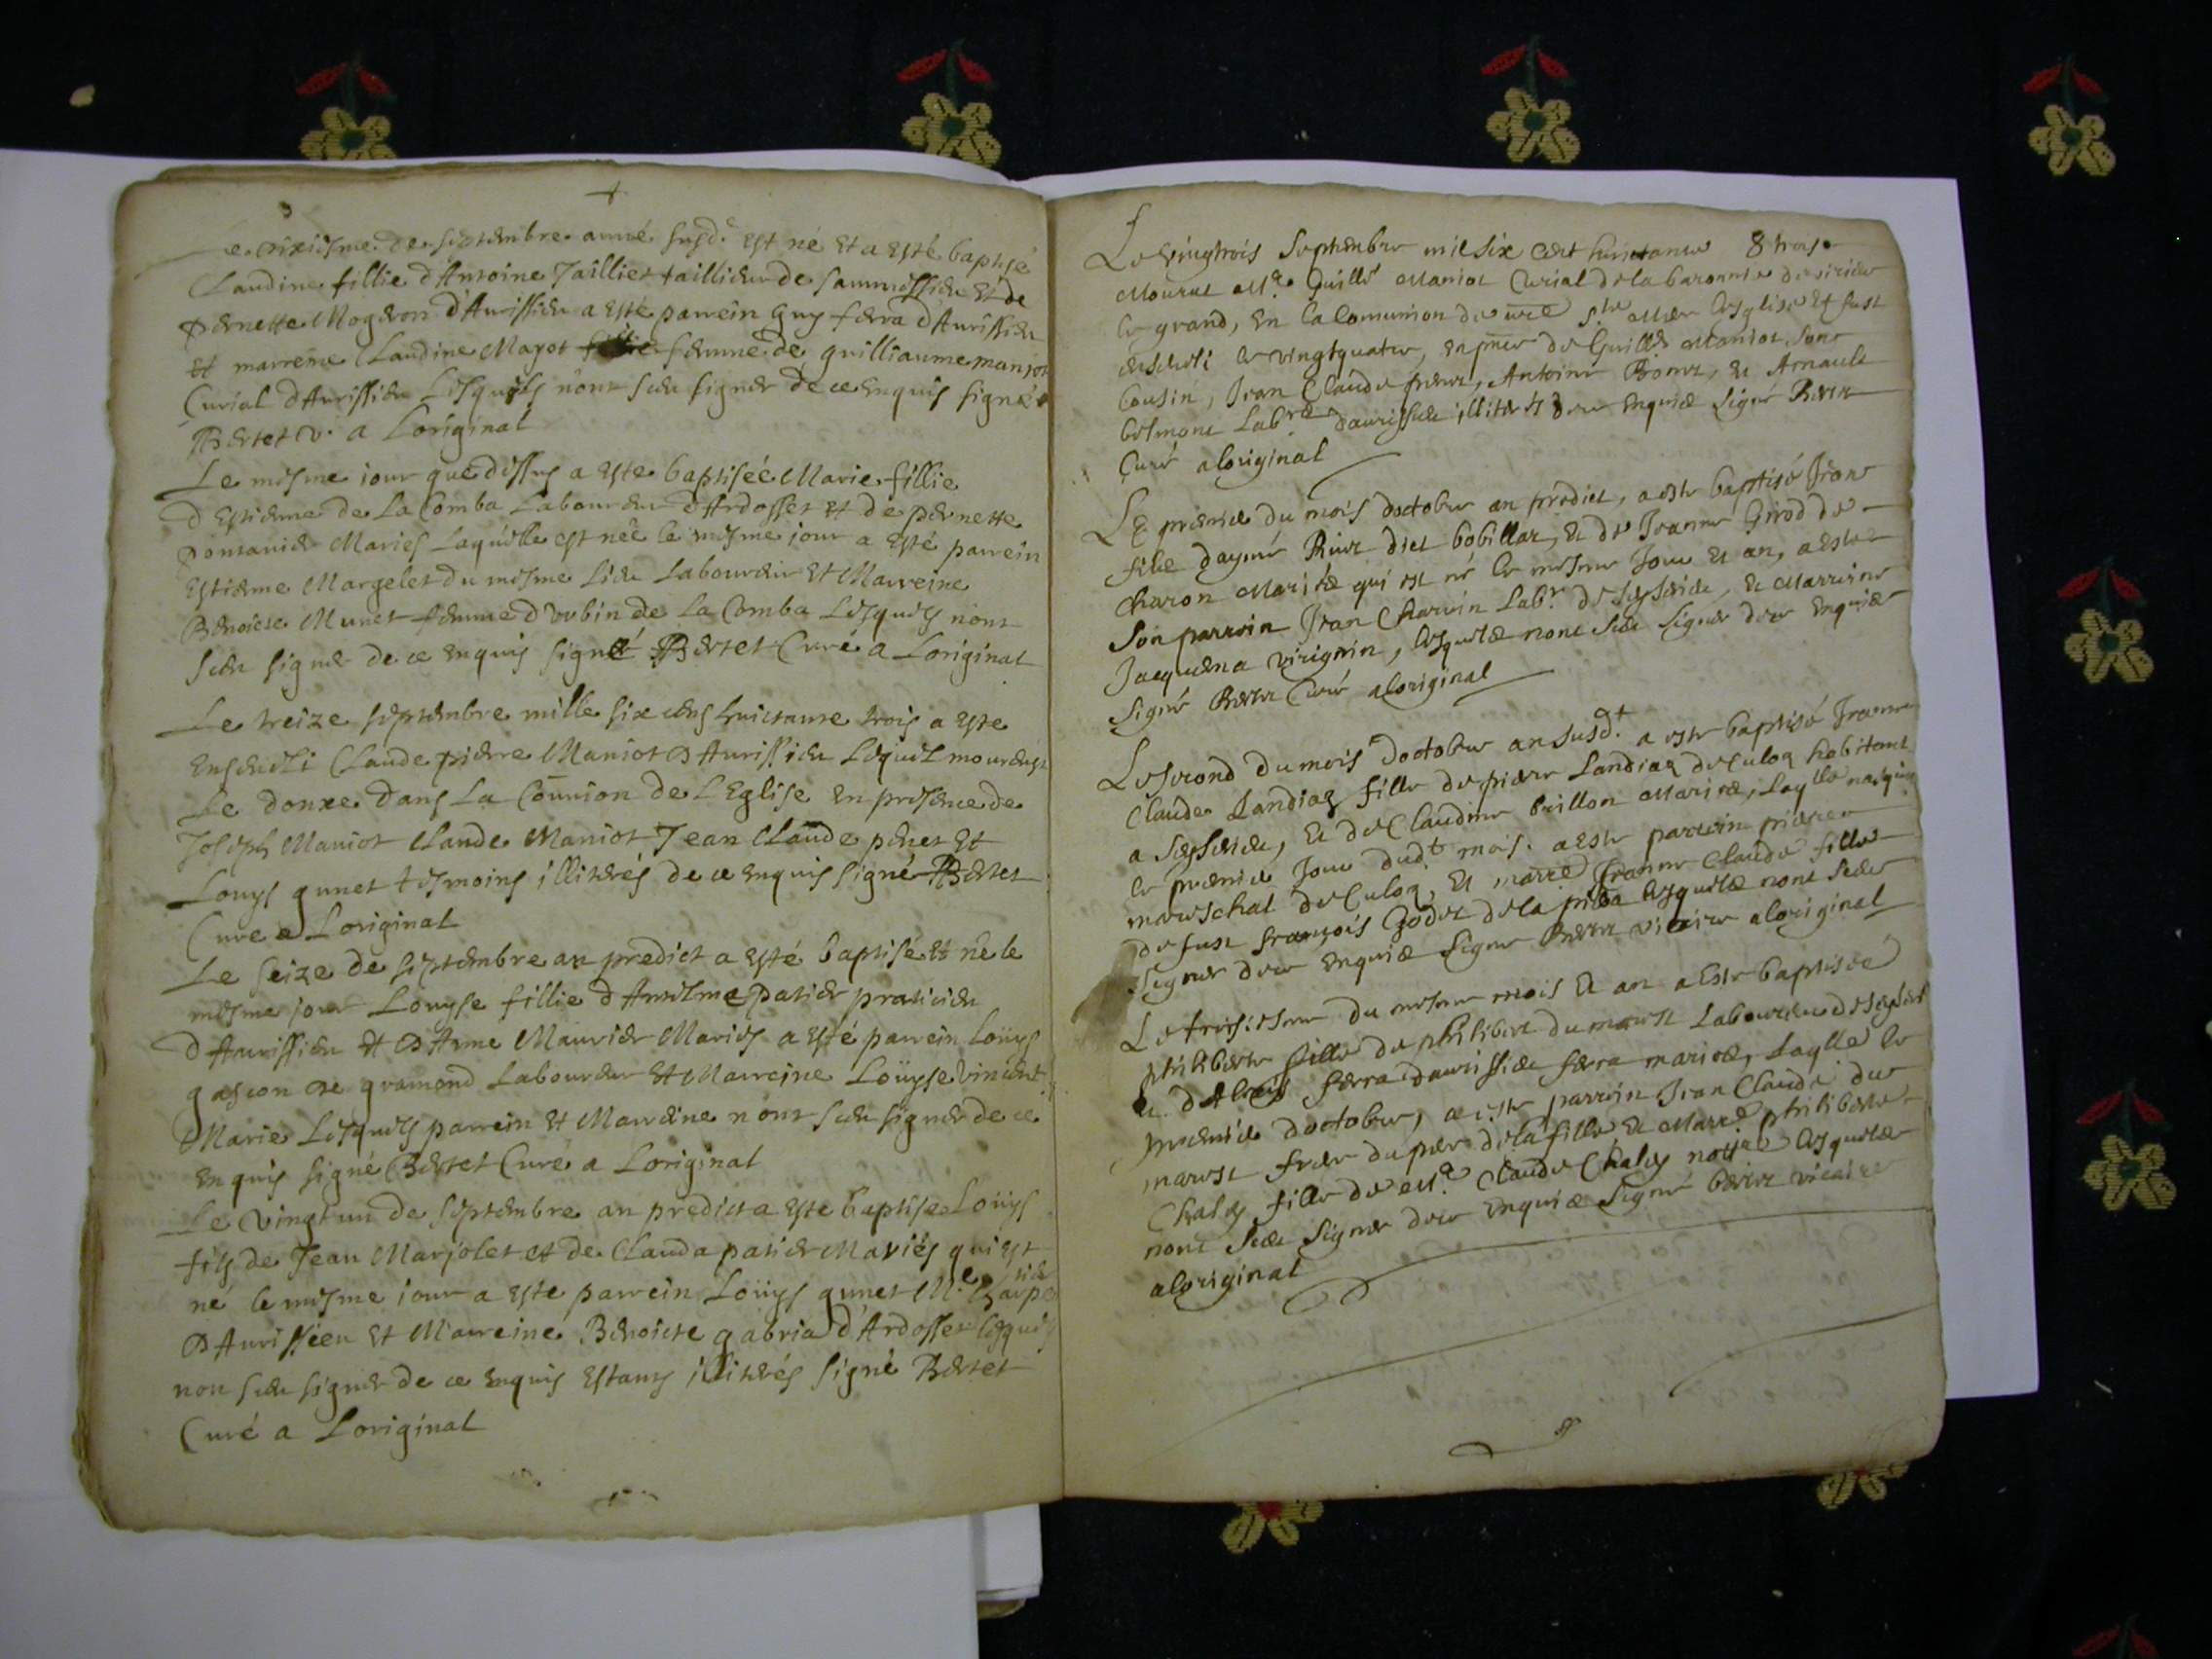 Le dixiesme de septembre anné susd.e est né et a esté baptisé
Claudine fillie d'Antoine Jailliet taillieur de Sammessieu et de
Pernette Mogeron d'Aurissieu a esté parrein Guy ferra d'Aurissieu
et marreine Claudine Mayot femme de guilliaume maniot
Curial d'Aurissieu Lesquels n'ont sceu signer de ce enquis signé
Bertet v. a Loriginal
Le mesme iour que dessus a este baptiseé Marie fillie
d'Estienne de La Comba Laboureur d'Ardosset et de pernette
Pontanier Mariés Laquelle est neé le mesme iour a esté parrein
Estienne Margelet du mesme lieu Laboureur et Marreine
Benoiste Munet femme d'Urbin de La Comba Lesquels n'ont
sceu signer de ce enquis signé Bertet Curé a Loriginal
Le treize septembre mille six cens huictante trois a este
Enseveli Claude pierre Maniot D'Aurissieu Lequel mourust
Le douxe dans La Cōmion de L'Eglise en presence de
Joseph Maniot Claude Maniot Jean Claude penet Et
Louys gunet tesmoins illiterés de ce enquis signé Bertet
Cure a Loriginal
Le seize de septembre an predict a esté baptisé et né le
mesme jour Louyse fillie d'Antelme patier praticien
d'Aurissieu et D'Anne Maurier Mariés a esté parrein Loüys
gascon de gramond Laboureur et Marreine Loüyse vincent
Marie Lesquels parrein et Marreine n'ont sceu signer de ce
enquis signé Bertet Curé a Loriginal
Le vingt un de septembre an predict a este baptise Loüys
fils de Jean Marjolet et de Clauda patier Mariés qui est
né le mesme iour a este parrein Loüys gunet M.e Charpentier
D'Aurissieu et Marreine Benoiste gabria d'Ardosset lesquels
non sceu signer de ce enquis estants illiterés signé Bertet
Curé a Loriginal
Le vingtrois Septembre mil six cent huictante 8 trois
Mourut M.e Guille Maniot Curial de la baronnie de virieu
le grand, en la Comunion de nre s.te Mere Esglise et fust
enseveli le vingtquatre, en pnce de Guille Maniot son
cousin, Jean Claude penet, Antoine Bonet, et Arnault
belmont Lab.re d'aurissieu illiterés de ce enquis Signé Bertet
Curé aloriginal
Le premier du mois doctobre an prédict, a este baptisé Jean
fils daymé Rivet dict bobillat, et de Jeanne Girod de
Charon Mariés qui est né le mesme Jour et an, a este
Son parrein Jean Charvin Lab.r de Seyssieu, et Marreine
Jacquema virignin, lesquels nont sceu Signer de ce enquis
Signé Bertet Curé aloriginal
Le second du mois doctobre an susd.t a este baptisé Jeanne
Claude Landiaz fille de pierre Landiaz de Culoz habitant
a , et de Claudine brillon Mariés, laqlle nasquit
le premier Jour dud.t mois. a este parrein pierre
mareschal de Culoz, et marre Jeanne Claude fille
de fust françois Godet de la lesquels nont sceu
Signer de ce enquis Signé Bertet vicaire aloriginal
Le troisiesme du mesme mois et an a este baptisée
philiberte fille de philibert du marest Laboureur
et ferra daurissieu mariés, Laqlle le
premier doctobre, a este parrein Jean Claude du
marest frere du pere de la fille et Marre philiberte
Chaley fille de M.e Claude Chaley no.re lesquels
nont sceu Signer de ce enquis Signé bertet vicaire
aloriginal